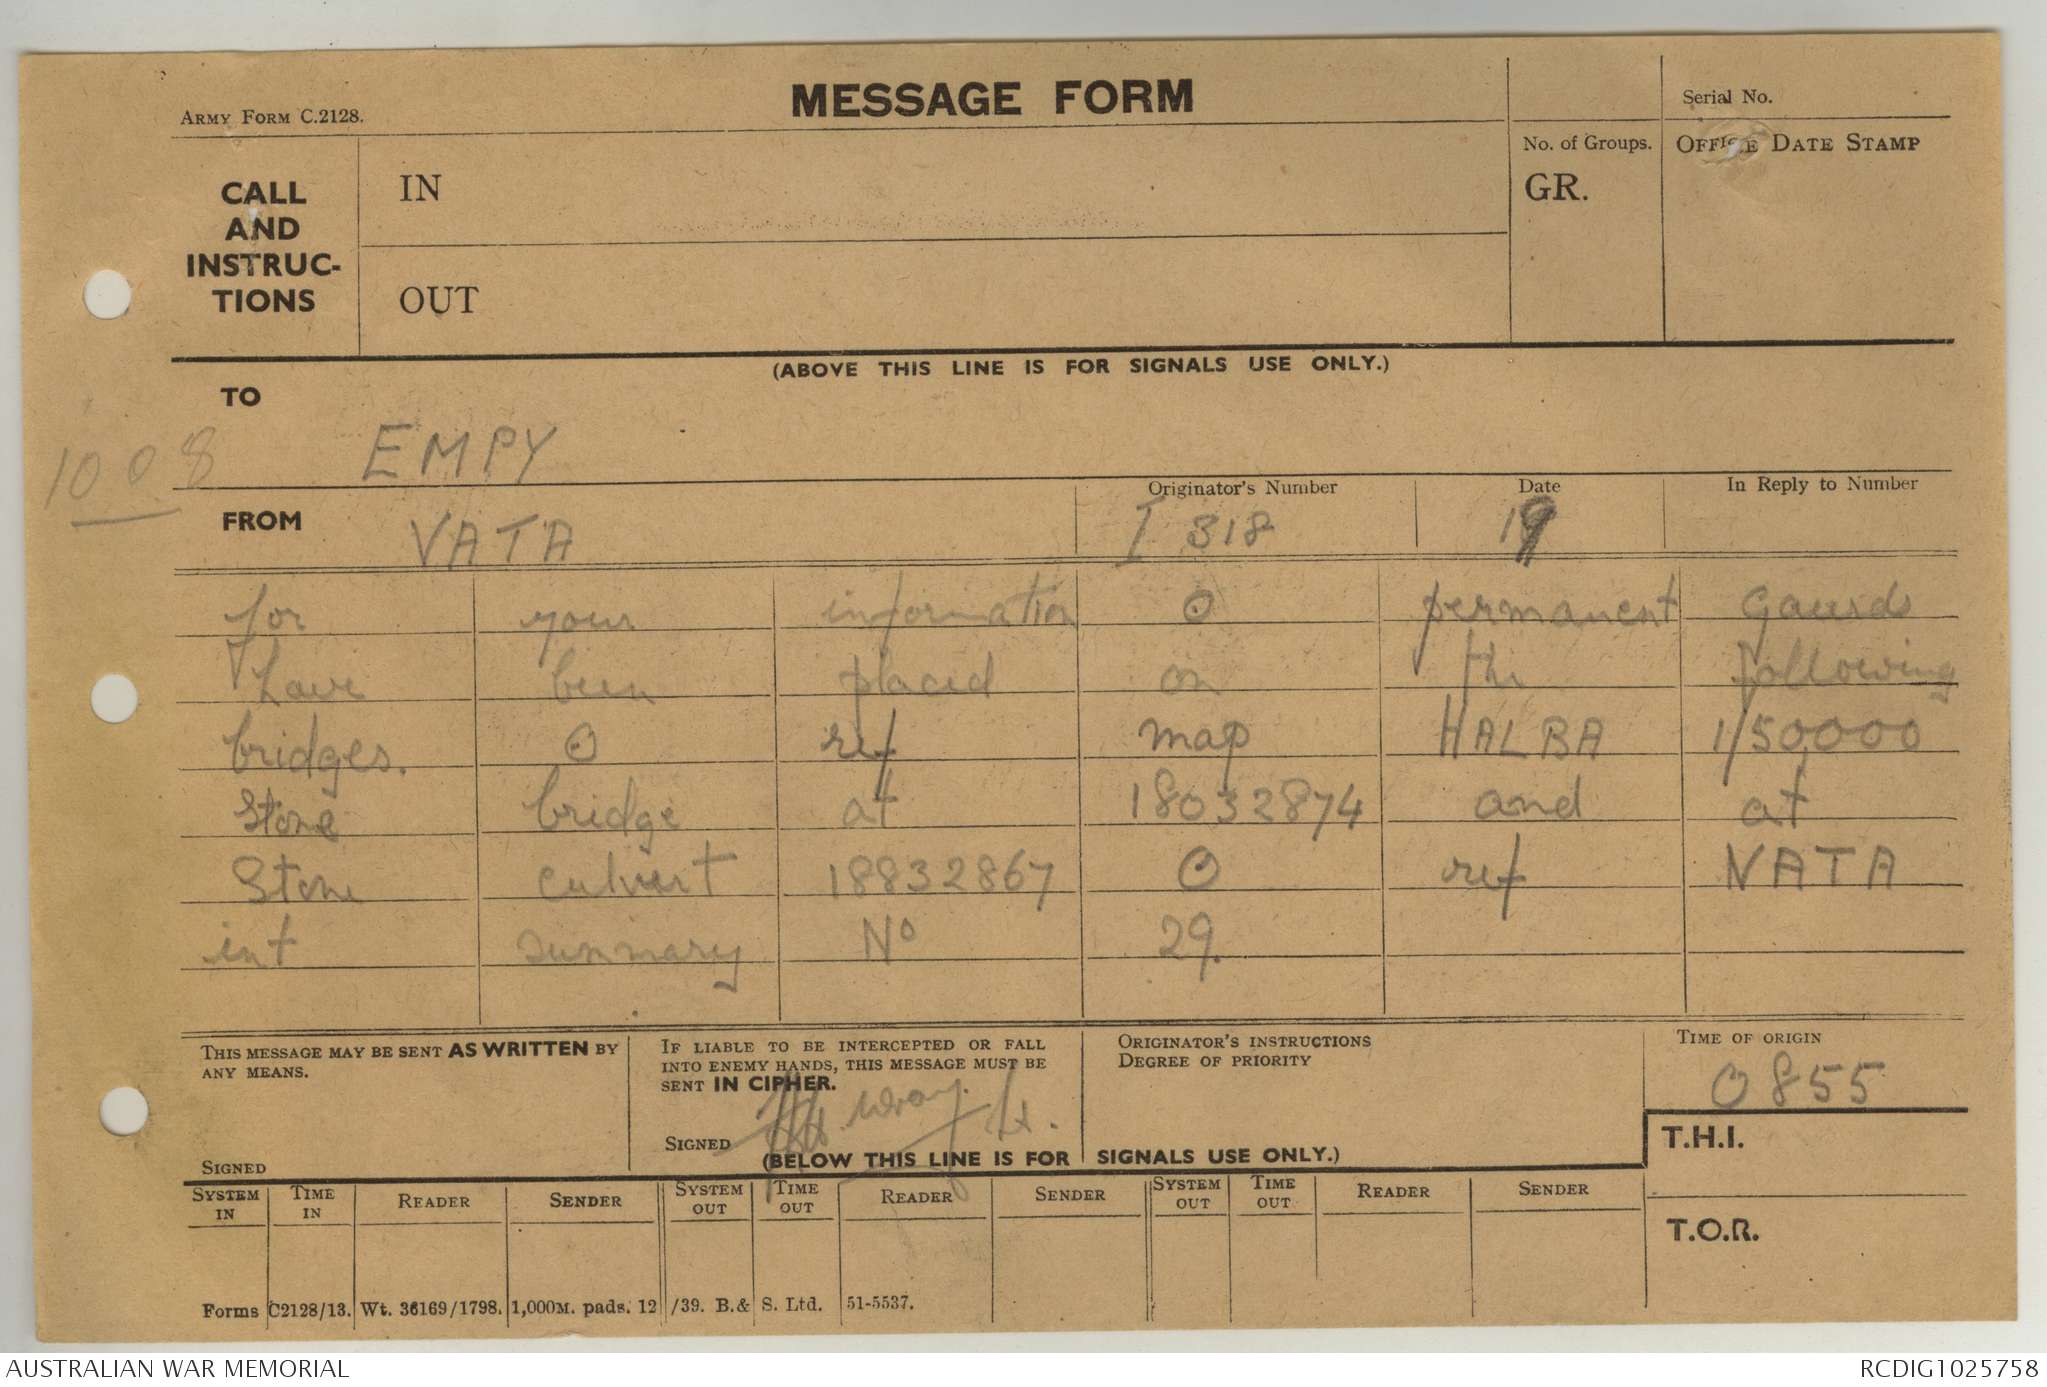 ARMY FORM C.2128.
MESSAGE FORM
Serial No.
CALL AND INSTRUC-TIONS
IN
OUT
No. of Groups.
GR.
OFFICE DATE STAMP
(ABOVE THIS LINE IS FOR SIGNALS USE ONLY.)
TO
1008
EMPY
FROM
VATA
Originator's Number
I 318
Date
19
In Reply to Number
for your information O permanent gaurds
have been placed on the following
bridges. O ref map HALBA 1/50,000
Stone bridge at 18032874 and at
Stone culvert 18832867 O ref VATA
int summary No 29.
THIS MESSAGE MAY BE SENT AS WRITTEN BY
ANY MEANS.
SIGNED
IF LIABLE TO BE INTERCEPTED OR FALL
INTO ENEMY HANDS, THIS MESSAGE MUST BE
SENT IN CIPHER.
SIGNED Wray Lt.
ORIGINATOR'S INSTRUCTIONS
DEGREE OF PRIORITY
TIME OF ORIGIN
0855
T.H.I.
(BELOW THIS LINE IS FOR SIGNALS USE ONLY.)
SYSTEM IN TIME IN READER SENDER SYSTEM OUT TIME OUT READER SENDER SYSTEM OUT TIME OUT READER SENDER
T.O.R.
Forms C2128/13. Wt. 36169/1798. 1,000M. pads. 12/39. B.& S. Ltd. 51-5537.
AUSTRALIAN WAR MEMORIAL
RCDIG1025758